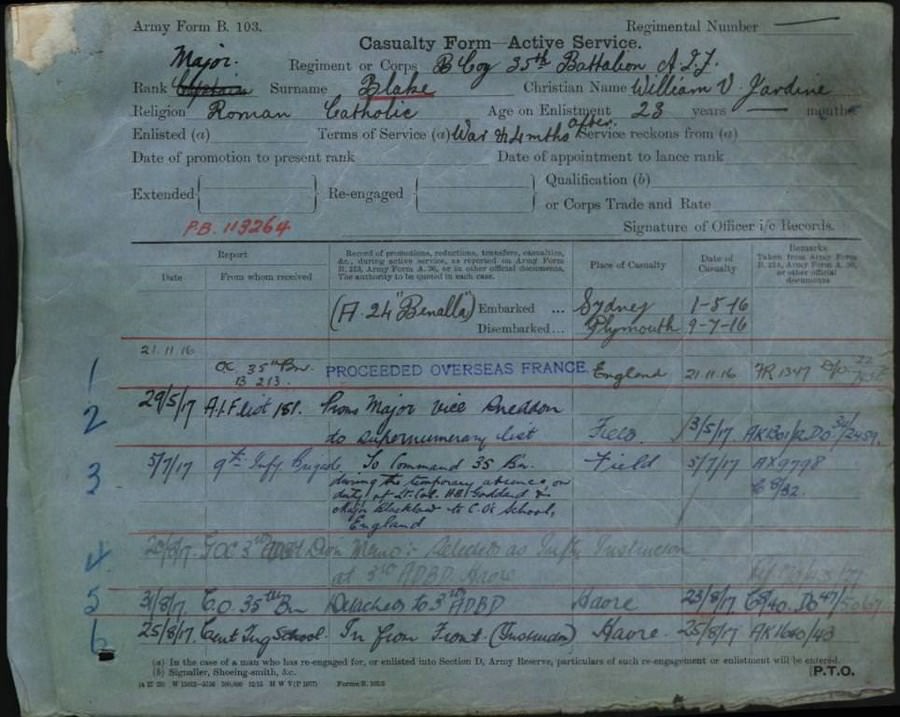 Army Form B. 103.
Regimental Number
Casualty Form—Active Service.
Major.
Regiment or Corps B Coy 35th Battalion A.I.F.
Rank Captain Surname Blake Christian Name William V. Jardine
Religion Roman Catholic Age on Enlistment 23 years months
Enlisted (a) Terms of Service (a) War & 4 mths after. Service reckons from (a)
Date of promotion to present rank Date of appointment to lance rank
Extended Re-engaged Qualification (b)
or Corps Trade and Rate
P.B. 113264
Signature of Officer i/c Records.
Report
Date From whom received
Record of promotions, reductions, transfers, casualties,
&c., during active service, as reported on Army Form
B. 213, Army Form A. 36, or in other official documents.
The authority to be quoted in each case.
Place of Casualty
Date of
Casualty
Remarks
Taken from Army Form
B. 213, Army Form A. 36,
or other official
documents
(A. 24 "Benalla") Embarked ... Sydney 1-5-16
Disembarked... Plymouth 9-7-16
21.11.16
1 OC 35th Bn. PROCEEDED OVERSEAS FRANCE England 21.11.16
B 213.
2 29/5/17 A.I.F list 151. Proms Major vice Sneddon
to supernumerary list Field. 3/5/17
3 5/7/17 9th Infy Brigade To Command 35 Bn. Field 5/7/17 AX9798
during the temporary absence, on
duty, of Lt. Col. H.A. Goddard &
Major Blacklow to C.O's School,
England
4 Div Memo: Detached as Infty Instructor
at 3rd ADBD Havre
5 31/8/17. C.O. 35th Bn Detached to 3rd ADBD Havre 23/8/17.
6 25/8/17. Cent Tng School. In from Front. Havre. 25/8/17
(a) In the case of a man who has re-engaged for, or enlisted into Section D, Army Reserve, particulars of such re-engagement or enlistment will be entered.
(b) Signaller, Shoeing-smith, &c.
P.T.O.